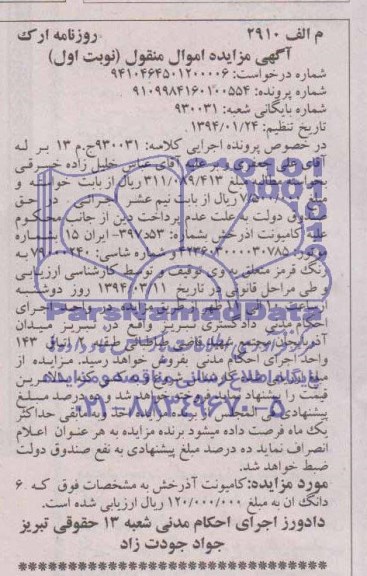 م الف ۲۹۱۰ روزنامه ارک
آگهی مزایده اموال منقول (نوبت اول)
شماره درخواست: ۹۴۱۰۴۶۴۵۰۱۲۰۰۰۰۶
شماره پرونده: ۹۱۰۹۹۸۴۱۶۰۱۰۰۵۵۴
شماره بایگانی شعبه: ۹۳۰۰۳۱
تاریخ تنظیم: ۱۳۹۴/۰۱/۲۴
در خصوص پرونده اجرایی کلاسه: ۹۳۰۰۳۱ج.م ۱۳ بر له
آقای علی بر علیه آقای عباس خلیل زاده خیرقی
مبلغ ۳۱۱/۰۸۹/۴۱۳ ریال از بابت خواسته و
مبلغ ریال از بابت نیم عشر اجرائی در حق
صندوق دولت به علت عدم پرداخت دین از جانب محکوم
علیه کامیونت آذرخش بشماره: ۵۳د۳۹۷- ایران ۱۵ بشماره
موتور: و شماره شاسی: به
رنگ قرمز متعلق به وی توقیف و توسط کارشناسی ارزیابی
و طی مراحل قانونی در تاریخ ۱۳۹۴/۰۳/۱۱ روز دوشنبه
از ساعت اجرای
احکام مدنی دادگستری تبریز واقع در تبریز میدان
آذربایجان مجتمع قضایی طبقه ۲ اتاق ۱۴۳
واحد اجرای احکام مدنی بفروش خواهد رسید. مزایده از
قیمت را پیشنهاد نماید فروخته خواهد شد و ده درصد مبلغ
پیشنهادی فی المجلس از برنده مزایده اخذ و مابقی حداکثر
یک ماه فرصت داده میشود برنده مزایده به هر عنوان اعلام
انصراف نماید ده درصد مبلغ پیشنهادی به نفع صندوق دولت
ضبط خواهد شد.
مورد مزایده: کامیونت آذرخش به مشخصات فوق که ۶
دانگ ان به مبلغ ۱۲۰/۰۰۰/۰۰۰ ریال ارزیابی شده است.
دادورز اجرای احکام مدنی شعبه ۱۳ حقوقی تبریز
جواد جودت زاد
ParsNamadData
پایگاه اطلاع رسانی مناقصه و مزایده
۰۲۱-۸۸۳۴۹۶۷۰-۵